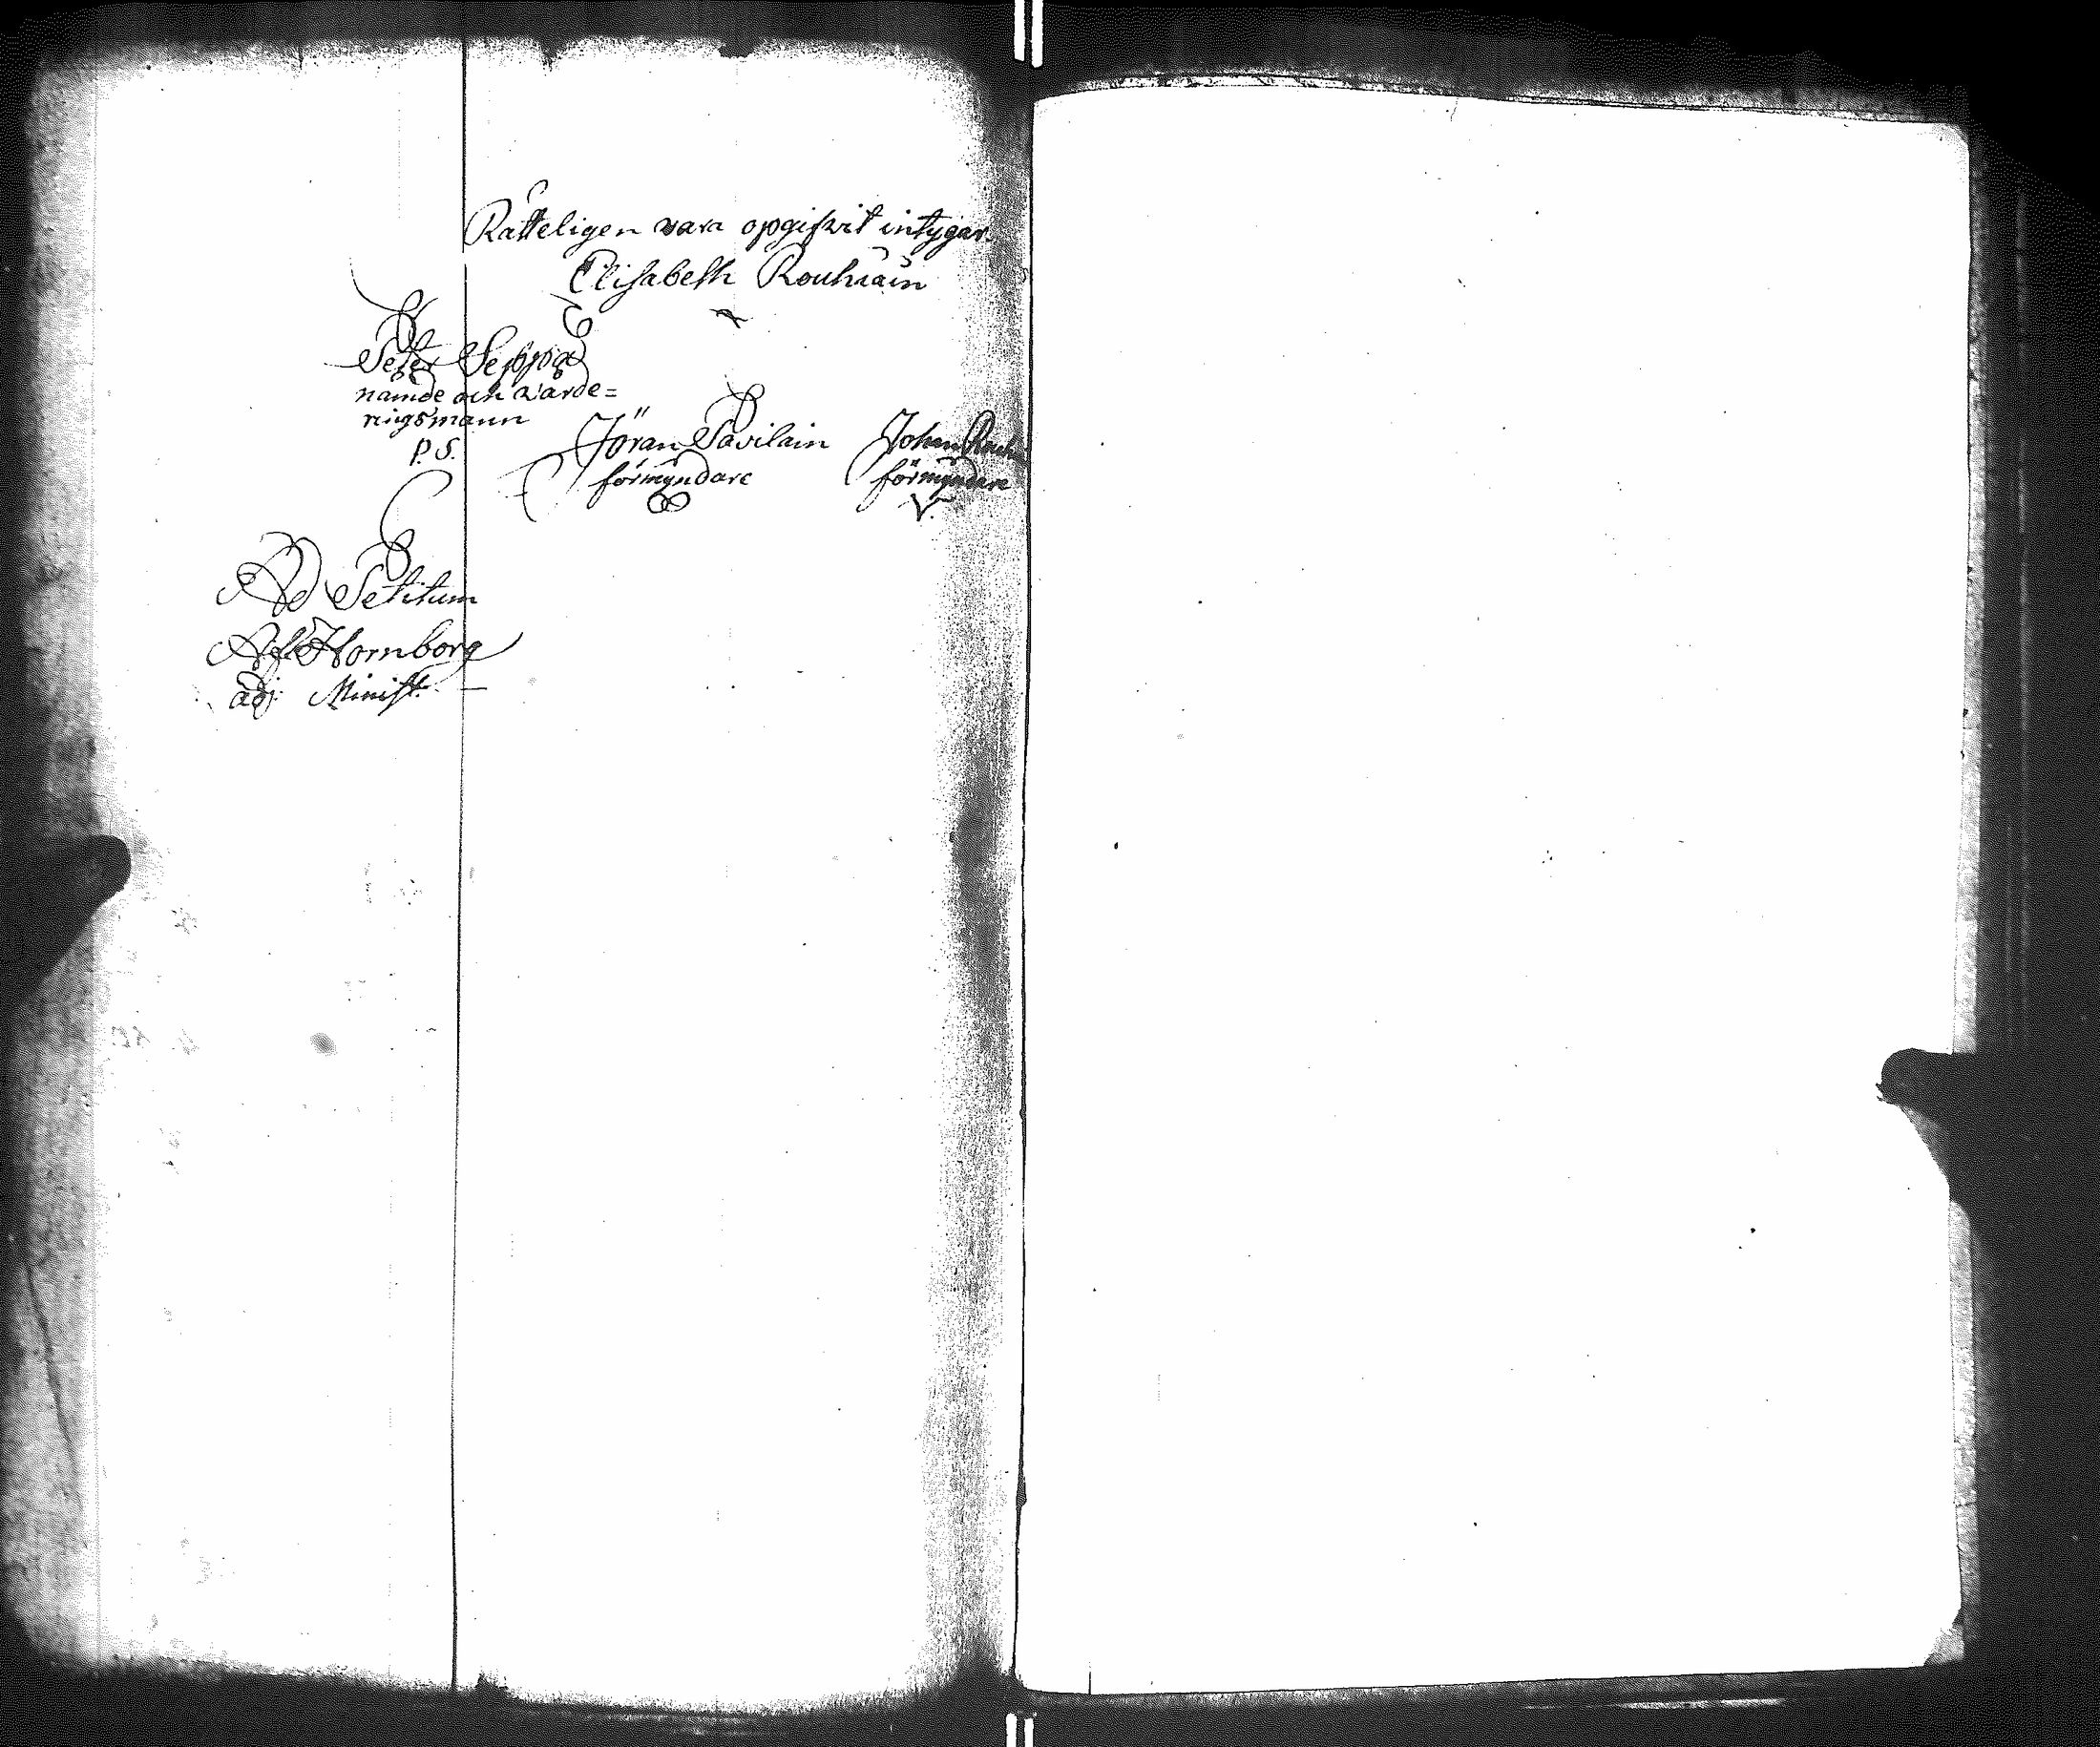 Rätteligen vara opgifwit intygar.
Elisabeth Rouhiain
Peter Seppä
nämde och wärde=
ringsmann
P. S.
Jöran Pavilain
förmyndare
Johan
förmyndare
Ad Petitum
Hornborg
adj. Minist.